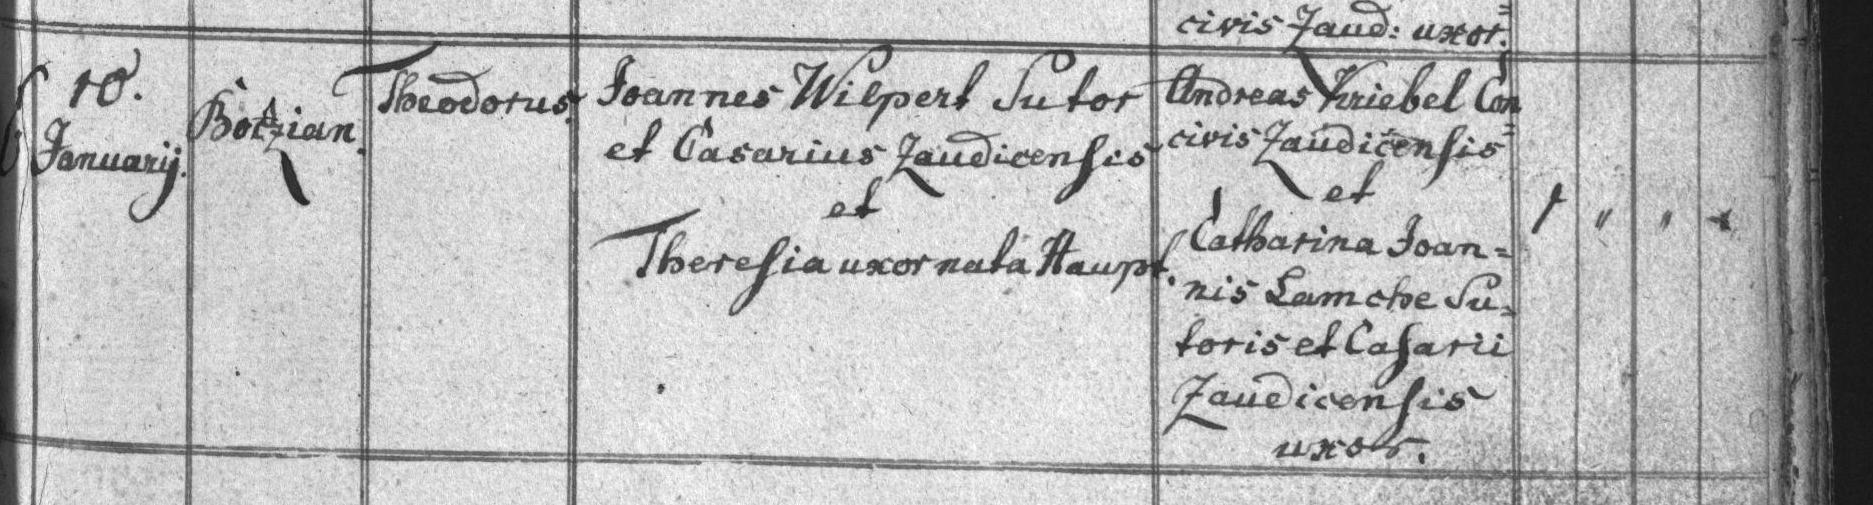 civis Zaud: uxor.
10.
Januarij.
Botzian.
Theodorus.
Joannes Wilpert Sutor
et Casarius Zaudicensis
et
Theresia uxor nata Haupt.
Andreas Kriebel Con=
civis Zaudicensis
et
Catharina Joan=
nis Lamche Su=
toris et Casarii
Zaudicensis
uxor.
1 " " +